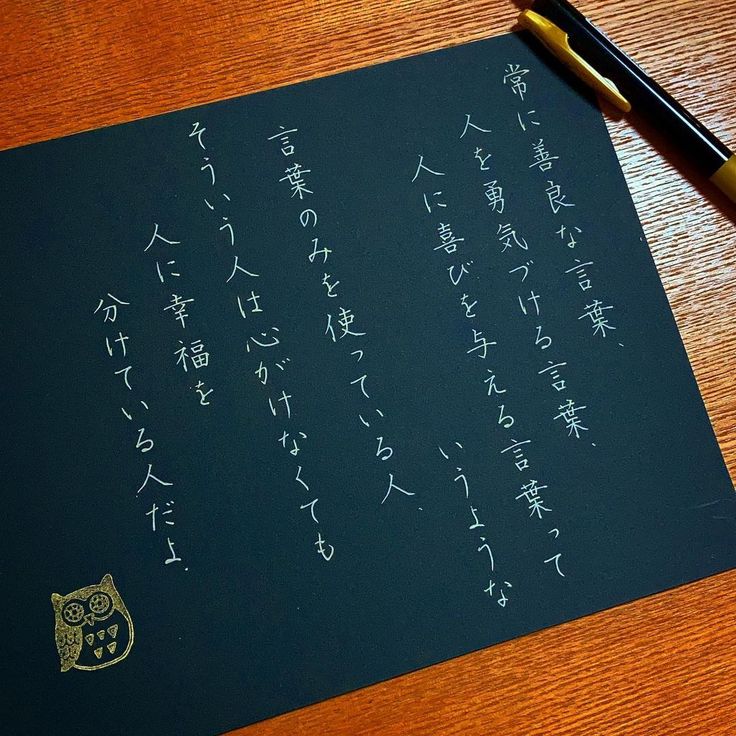 常に善良な言葉、
人を勇気づける言葉、
人に喜びを与える言葉って
いうような
言葉のみを使っている人、
そういう人は心がけなくても
人に幸福を
分けている人だよ.